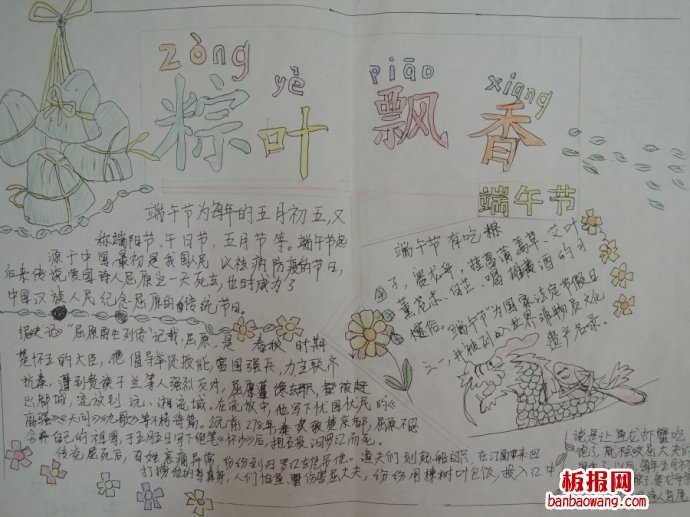 zòng yè piāo xiāng
粽叶飘香
端午节
端午节为每年的五月初五,又
称端阳节、午日节,五月节等。端午节起
源于中国最初是我国人民以祛病防疫的节日,
后来传说爱国诗人屈原这一天死去,也时成了
中国汉族人民纪念屈原的传统节日。
据史记"屈原 生列传"记载,屈原,是春秋时期
楚怀王的大臣,他倡导举贤授能,富国强兵,力主联齐
抗秦,遭到贵族子兰等人强烈反对,屈原
出都城,流放到沅、湘流域。在流放中,他写下忧国忧民的《
离骚》《天问》《九歌》等 诗篇。公元前278年,秦 京都,屈原不
自己的祖国,于五月五日 绝笔《怀沙》后,抱石投汨罗江 死。
传说屈原死后, 百姓哀痛异常,纷纷到汨罗江 。渔夫们划起船只,在江面来回
打捞他的 身,人们怕 大夫,纷纷用楝树叶包饭,投入江中
端午节有吃粽
子,赛龙舟,挂菖蒲蒿草、艾叶
薰苍术、白芷 喝雄黄酒的习
俗。"端午节"为国家法定节假日
之一,并 到世界非物质文化
遗产名录。
说是让鱼龙虾蟹吃
饱了,
板报网
banbaowang.com